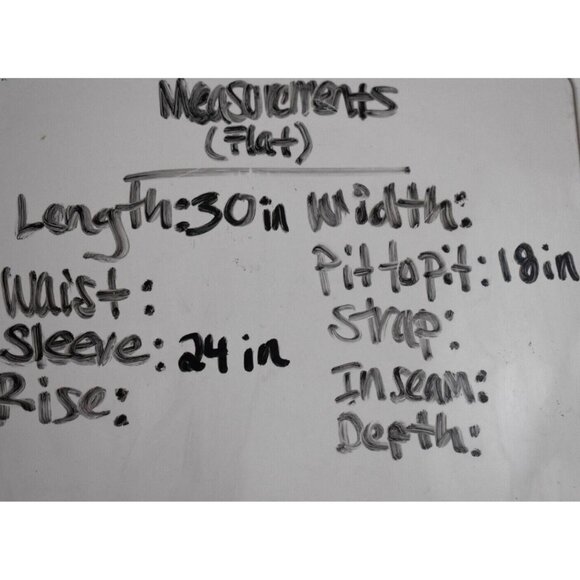 Measurements
(Flat)
Length: 30 in Width:
Waist: Pit to pit: 18 in
Sleeve: 24 in Strap:
Rise: Inseam:
Depth: